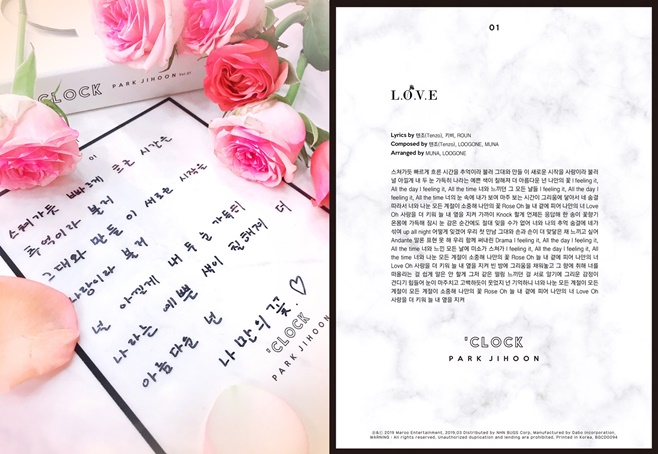 'CLOCK
PARK JIHOON
01
스쳐가듯 빠르게 흐른 시간을
추억이라 불러
그대와 만들 이 새로운 시작을
사랑이라 불러
널 아낄게 내 두 눈 가득히
나라는 예쁜 색이 칠해져 더
아름다운 넌
나만의 꽃.♡
'CLOCK
PARK JIHOON
01
L.O.V.E
Lyrics by 텐조(Tenzo), 키퍼, ROUN
Composed by 텐조(Tenzo), LOOGONE, MUNA
Arranged by MUNA, LOOGONE
스쳐가듯 빠르게 흐른 시간을 추억이라 불러 그대와 만들 이 새로운 시작을 사랑이라 불러
널 아낄게 내 두 눈 가득히 나라는 예쁜 색이 칠해져 더 아름다운 넌 나만의 꽃 I feeling it,
All the day I feeling it, All the time 너와 느끼던 그 모든 날들 I feeling it, All the day I
feeling it, All the time 너의 눈 속에 내가 보여 마주 보는 시간이 그리움에 닿아서 네 숨결
따라서 너와 나눈 모든 계절이 소중해 나만의 꽃 Rose Oh 늘 내 곁에 피어 나만의 너 Love
Oh 사랑을 더 키워 늘 내 옆을 지켜 가까이 Knock 할게 언제든 응답해 한 송이 꽃향기
온몸에 가득해 잠시 눈 감은 순간에도 절대 잊을 수가 없어 너와 나의 추억 숨결에 네가
섞여 up all night 어떻게 잊겠어 우리 첫 만남 그대와 손과 손이 더 맞닿은 채 느끼고 싶어
Andante 말론 표현 못 해 우리 함께 써내린 Drama I feeling it, All the day I feeling it,
All the time 너와 느낀 모든 날에 미소가 스쳐가 I feeling it, All the day I feeling it, All
the time 너와 나눈 모든 계절이 소중해 나만의 꽃 Rose Oh 늘 내 곁에 피어 나만의 너
Love Oh 사랑을 더 키워 늘 내 옆을 지켜 빈 방에 그리움을 채워놓고 그 향에 취해 너를
떠올리는 걸 쉽게 말은 안 할게 그저 같은 떨림 느끼던 걸 서로 말기에 그리운 감정이
견디기 힘들어 눈이 마주치고 고백하듯이 웃었지 넌 기억하니 너와 나눈 모든 계절이 모든
계절이 모든 계절이 소중해 나만의 꽃 Rose Oh 늘 내 곁에 피어 나만의 너 Love Oh
사랑을 더 키워 늘 내 옆을 지켜
'CLOCK
PARK JIHOON
2019 Maroo Entertainment, 2019.03 Distributed by NHN BUGS Corp, Manufactured by Dabo Incorporation,
WARNING : All rights reserved, Unauthorized duplication and lending are prohibited, Printed in Korea, BGCD0094